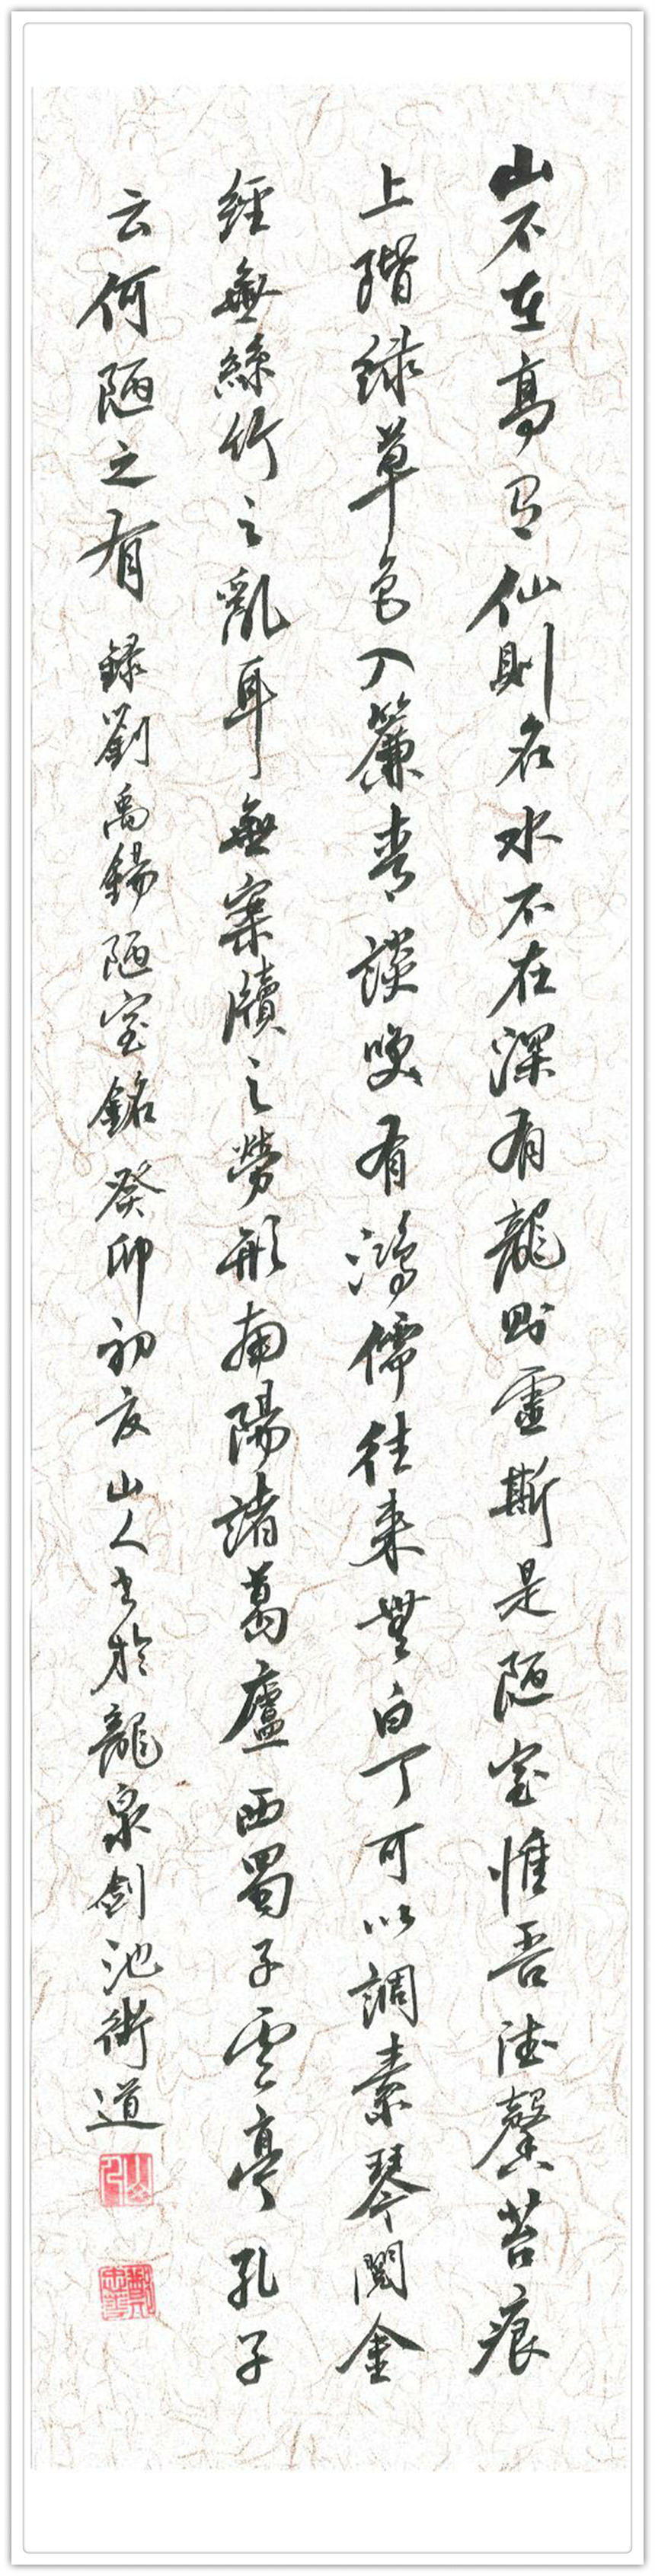 山不在高有仙則名水不在深有龍則靈斯是陋室惟吾德馨苔痕
上階緑草色入簾青談笑有鴻儒往來無白丁可以調素琴閱金
經無絲竹之亂耳無案牘之勞形南陽諸葛廬西蜀子雲亭孔子
云何陋之有 録劉禹錫陋室銘癸卯初夏山人書於龍泉劍池街道